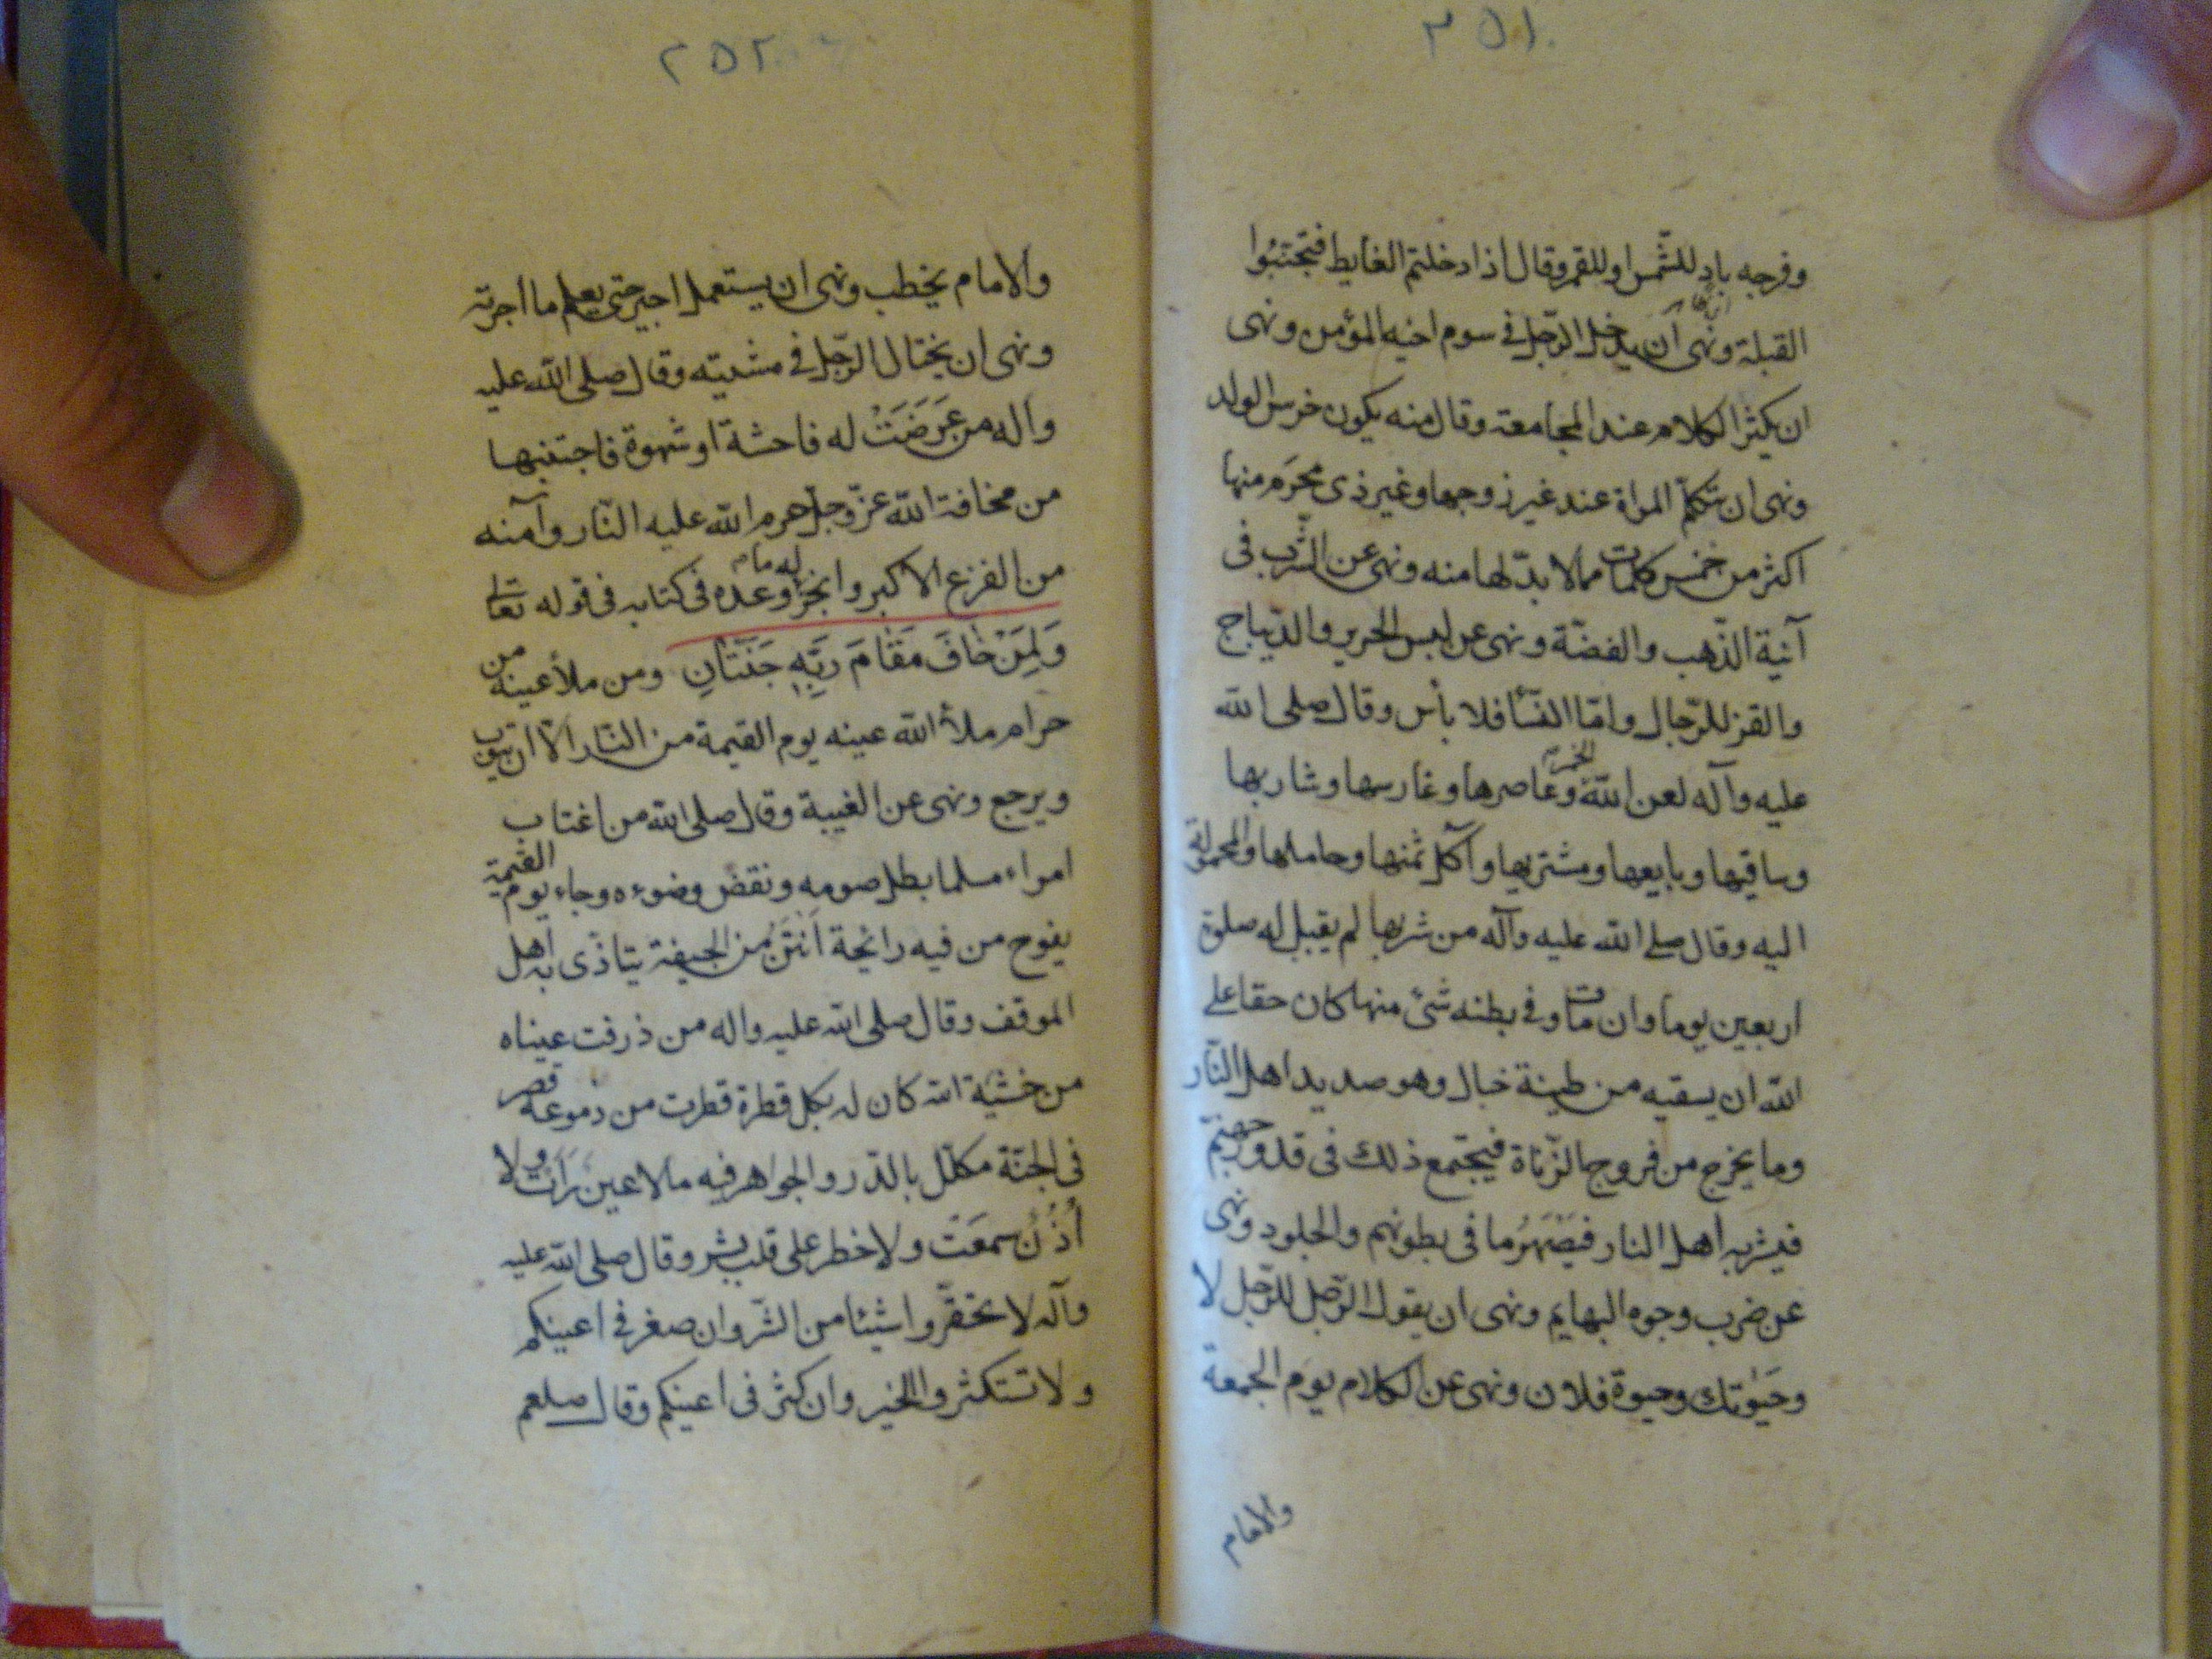 ٢٥١
وفرجه باد للشّمس او للقمر وقال اذا دخلتم الغايط فتجتنبُوا
القبلة ونهى ان يدخل الرّجل فى سوم اخيه المؤمن ونهى
ان يكثر الكلام عند المجامعة وقال منه يكون خرس الولد
ونهى ان تتكلّم المراة عند غير زوجها وغير ذى محرَم منها
اكثر من خمس كلمات ممالا بدّ لها منه ونهى عن الشّرب فى
آنية الذّهب والفضّة ونهى عن لبس الحرير والدّيباج
والقز للرّجال وامّا النّسأ فلا بأس وقال صلى الله
عليه وآله لعن الله الخمر وعاصرها وغارسها وشاربها
وساقيها وبايعها ومشتريها وآكل ثمنها وحاملها والمحمولة
اليه وقال صلى الله عليه وآله من شربها لم يقبل له صلوة
اربعين يوما وان مات وفى بطنه شئ منها كان حقا على
الله ان يسقيه من طينة خبال وهو صديد اهل النّار
وما يخرج من فروج الزّناة فيجتمع ذلك فى قدور جهنّم
فيشربه اهل النار فيَصْهَرُ ما فى بطونهم والجلود ونهى
عن ضرب وجوه البهايم ونهى ان يقول الرّجل للرّجل لا
وحَيٰوتك وحيوة فلان ونهى عن الكلام يوم الجمعة
والامام
٢٥٢
والامام يخطب ونهى ان يستعمل اجير حتى يعلم ما اجرته
ونهى ان يختال الرّجل فى مشيته وقال صلى الله عليه
واله من عَرَضَتْ له فاحشة او شهوة فاجتنبها
من مخافة الله عزّ وجلّ حرم الله عليه النّار وآمنه
من الفزع الاكبر وانجز له ما وعده فى كتابه فى قوله تعالى
وَلِمَنْ خافَ مَقٰامَ رَبِّهٖ جَنَّتٰانِ ومن ملأ عينه من
حرام ملأ الله عينه يوم القيمة من النّار الّا ان يتوب
ويرجع ونهى عن الغيبة وقال صلى الله من اغتاب
امراء مسلما بطل صومه ونقض وضوءه وجاء يوم القيمة
يفوح من فيه رائحة اَنْتَنُ من الجيفة يتاذّى به اهل
الموقف وقال صلى الله عليه واله من ذرفت عيناه
من خشية الله كان له بكل قطرة قطرت من دموعه قصر
فى الجنّة مكلّل بالدّر والجواهر فيه مالا عين رَاَت ولا
اُذُنٌ سمعَت ولا خطر على قلب بشر وقال صلى الله عليه
وآله لا تحقّروا شيئا من الشّر وان صغر فى اعينكم
ولا تستكثروا الخير وان كثر فى اعينكم وقال صلعم